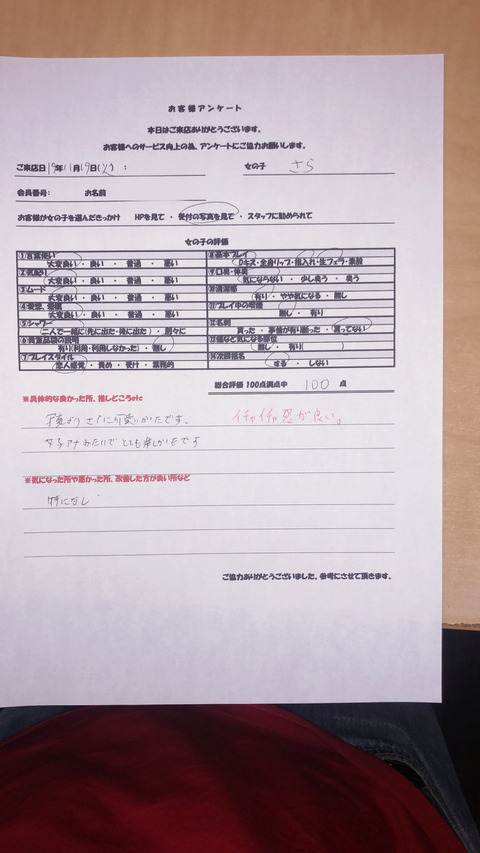 お客様アンケート
本日はご来店ありがとうございます。
お客様へのサービス向上の為、アンケートにご協力お願いします。
ご来店日 19年11月19日(火) :
女の子 さら
会員番号: お名前
お客様が女の子を選んだきっかけ HPを見て ・ 受付の写真を見て ・ スタッフに勧められて
女の子の評価
①言葉使い
大変良い ・ 良い ・ 普通 ・ 悪い
②気配り
大変良い ・ 良い ・ 普通 ・ 悪い
③ムード
大変良い ・ 良い ・ 普通 ・ 悪い
④愛想、接客
大変良い ・ 良い ・ 普通 ・ 悪い
⑤シャワー
二人で一緒に(先に出た・後に出た) ・ 別々に
⑥貴重品袋の説明
有り(利用・利用しなかった) ・ 無し
⑦プレイスタイル
恋人感覚 ・ 責め ・ 受け ・ 業務的
⑧基本プレイ
Dキス・全身リップ・指入れ・生フェラ・素股
⑨口臭・体臭
気にならない ・ 少し臭う ・ 臭う
⑩清潔感
有り ・ やや気になる ・ 無し
⑪プレイ中の喫煙
無し ・ 有り
⑫名刺
貰った ・ 事情が有り断った ・ 貰ってない
⑬傷など気になる部位
無し ・ 有り( )
⑭次回指名
する ・ しない
総合評価 100点満点中 100 点
※具体的な良かった所、推しどころetc
写真よりさらに可愛いかたです。
イチャイチャ感が良い。
女子アナみたいでとても楽しかったです
※気になった所や悪かった所、改善した方が良い所など
特になし
ご協力ありがとうございました。参考にさせて頂きます。